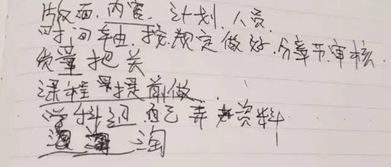 版面.内容.计划.人员.
时间轴.按规定做好.分章节审核.
质量把关
课程 提前做.
学科组自己弄 资料
淘